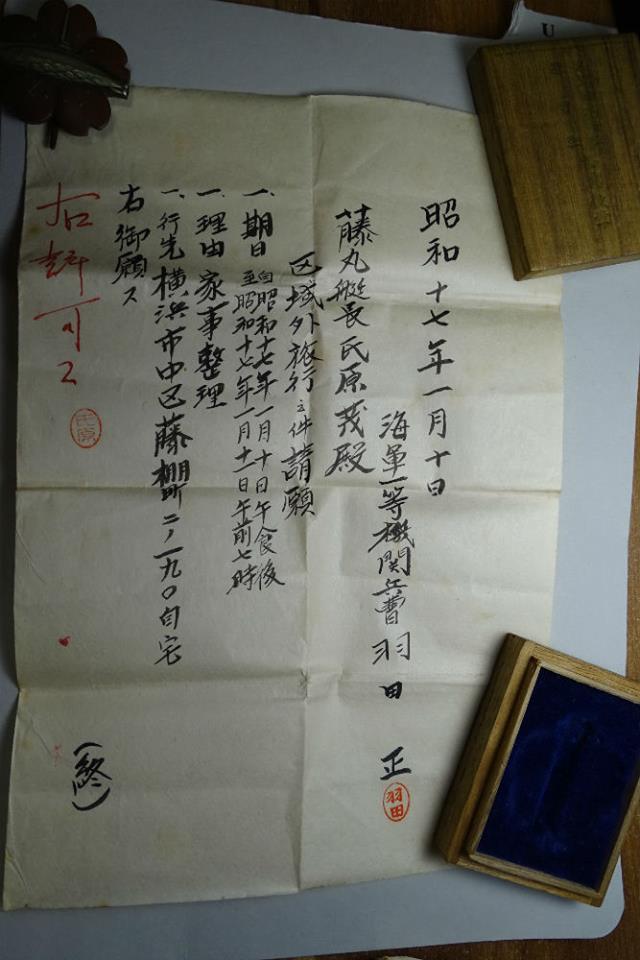 昭和十七年一月十日
海軍一等機関兵曹 羽田 正
羽田
藤丸艇長氏原茂殿
区域外旅行之件請願
一、期日 自昭和十七年一月十日午食後
至昭和十七年一月十一日午前七時
一、理由 家事整理
一、行先 横浜市中区藤棚町二ノ一九〇自宅
右御願ス
右許可ス
氏原
(終)
U